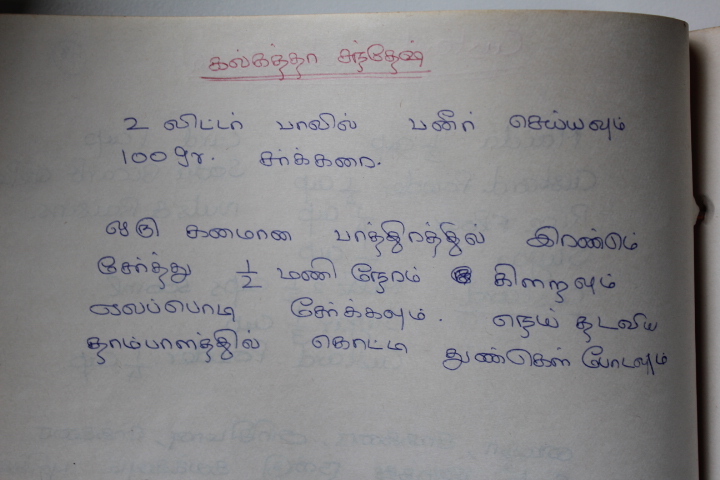 கல்கத்தா சந்தேஷ்
2 லிட்டர் பாலில் பனீர் செய்யவும்
100 gr. சர்க்கரை.
ஒரு கனமான பாத்திரத்தில் இரண்டும்
சேர்த்து 1/2 மணி நேரம் கிளறவும்
ஏலப்பொடி சேர்க்கவும். நெய் தடவிய
தாம்பாளத்தில் கொட்டி துண்கள் போடவும்